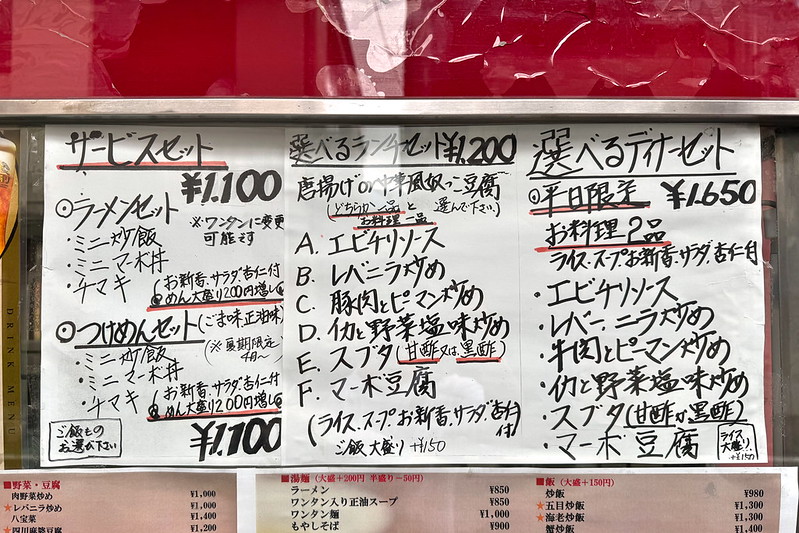 サービスセット
¥1.100
◎ラーメンセット
※ワンタンに変更
可能です
・ミニ炒飯
・ミニマーボ丼
・チマキ
(お新香、サラダ、杏仁付
●めん大盛り200円増し●
◎つけめんセット(ごま味、正油味)
(※夏期限定
4月〜
・ミニ炒飯
・ミニマーボ丼
・チマキ
(お新香、サラダ、杏仁付
●めん大盛り200円増し●
ご飯もの
お選び下さい
¥1.100
選べるランチセット¥1.200
唐揚げor中華風奴っこ豆腐
(どちらか一品と
お料理一品
選んで下さい。)
A. エビチリソース
B. レバニラ炒め
C. 豚肉とピーマン炒め
D. イカと野菜塩味炒め
E. スブタ(甘酢又は黒酢)
F. マーボ豆腐
(ライス、スープ、お新香、サラダ、杏仁
付)
ご飯大盛り +¥150
選べるディナーセット
◎平日限定 ¥1.650
お料理2品
ライス、スープ、お新香、サラダ、杏仁付
・エビチリソース
・レバーニラ炒め
・牛肉とピーマン炒め
・イカと野菜塩味炒め
・スブタ(甘酢か黒酢)
・マーボ豆腐
ライス
大盛り
+¥150
DRINK MENU
■野菜・豆腐
肉野菜炒め ¥1,000
★レバニラ炒め ¥1,000
八宝菜 ¥1,400
★四川麻婆豆腐 ¥1,200
■湯麺(大盛+200円 半盛り−50円)
ラーメン ¥850
ワンタン入り正油スープ ¥850
ワンタン麺 ¥1,000
もやしそば ¥900
■飯(大盛+150円)
炒飯 ¥980
★五目炒飯 ¥1,300
★海老炒飯 ¥1,300
蟹炒飯 ¥1,400